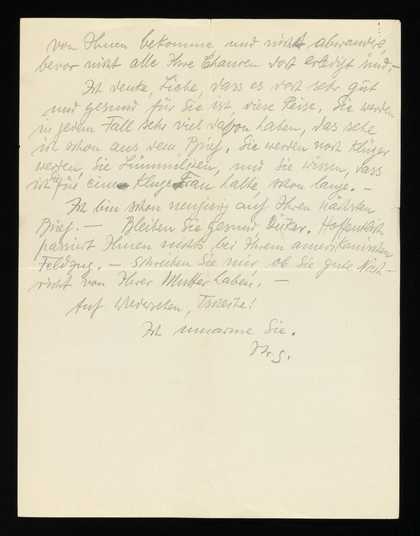 von Ihnen bekomme und nicht abwandre,
bevor nicht alle Ihre Chancen dort erledigt sind. –
Ich denke, Liebe, dass es dort sehr gut
und gesund für Sie ist diese Reise. Sie werden
in jedem Fall sehr viel davon haben, das sehe
ich schon aus dem Brief. Sie werden noch klüger
werden, Sie, und Sie wissen, dass
ich Sie für eine kluge Frau halte, schon lange. –
Ich bin schon neugierig auf Ihren nächsten
Brief. – Bleiben Sie gesund, Hoffentlich
passiert Ihnen nichts bei Ihrem amerikanischen
Feldzug. – Schreiben Sie mir ob Sie gute Nach-
richt von Ihrer Mutter haben. –
Auf Wiedersehen,
Ich umarme Sie.